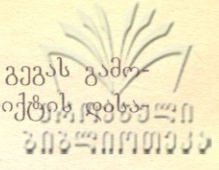 გეგას გამო-
იქტის დასა-
ეროვნული
ბიბლიოთეკა